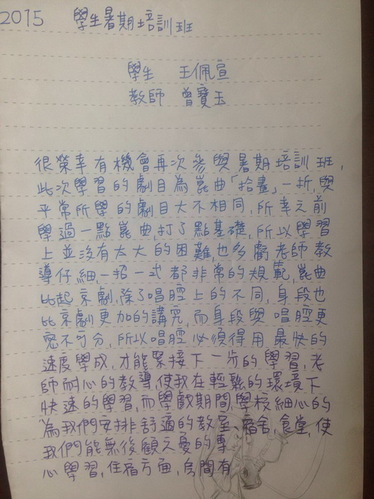 2015 學生暑期培訓班
學生 王佩宣
教師 曾寶玉
很榮幸有機會再次參與暑期培訓班,
此次學習的劇目為崑曲「拾畫」一折,與
平常所學的劇目大不相同,所幸之前
學過一點崑曲,打了點基礎,所以學習
上並沒有太大的困難,也多虧老師教
導仔細,一招一式都非常的規範,崑曲
比起京劇,除了唱腔上的不同,身段也
比京劇更加的講究,而身段與唱腔更
密不可分,所以唱腔必須得用最快的
速度學成,才能緊接下一步的學習,老
師耐心的教導,使我在輕鬆的環境下
快速的學習,而學戲期間,學校細心的
為我們安排舒適的教室,宿舍,食堂,使
我們能無後顧之憂的專
心學習,住宿方面,房間有